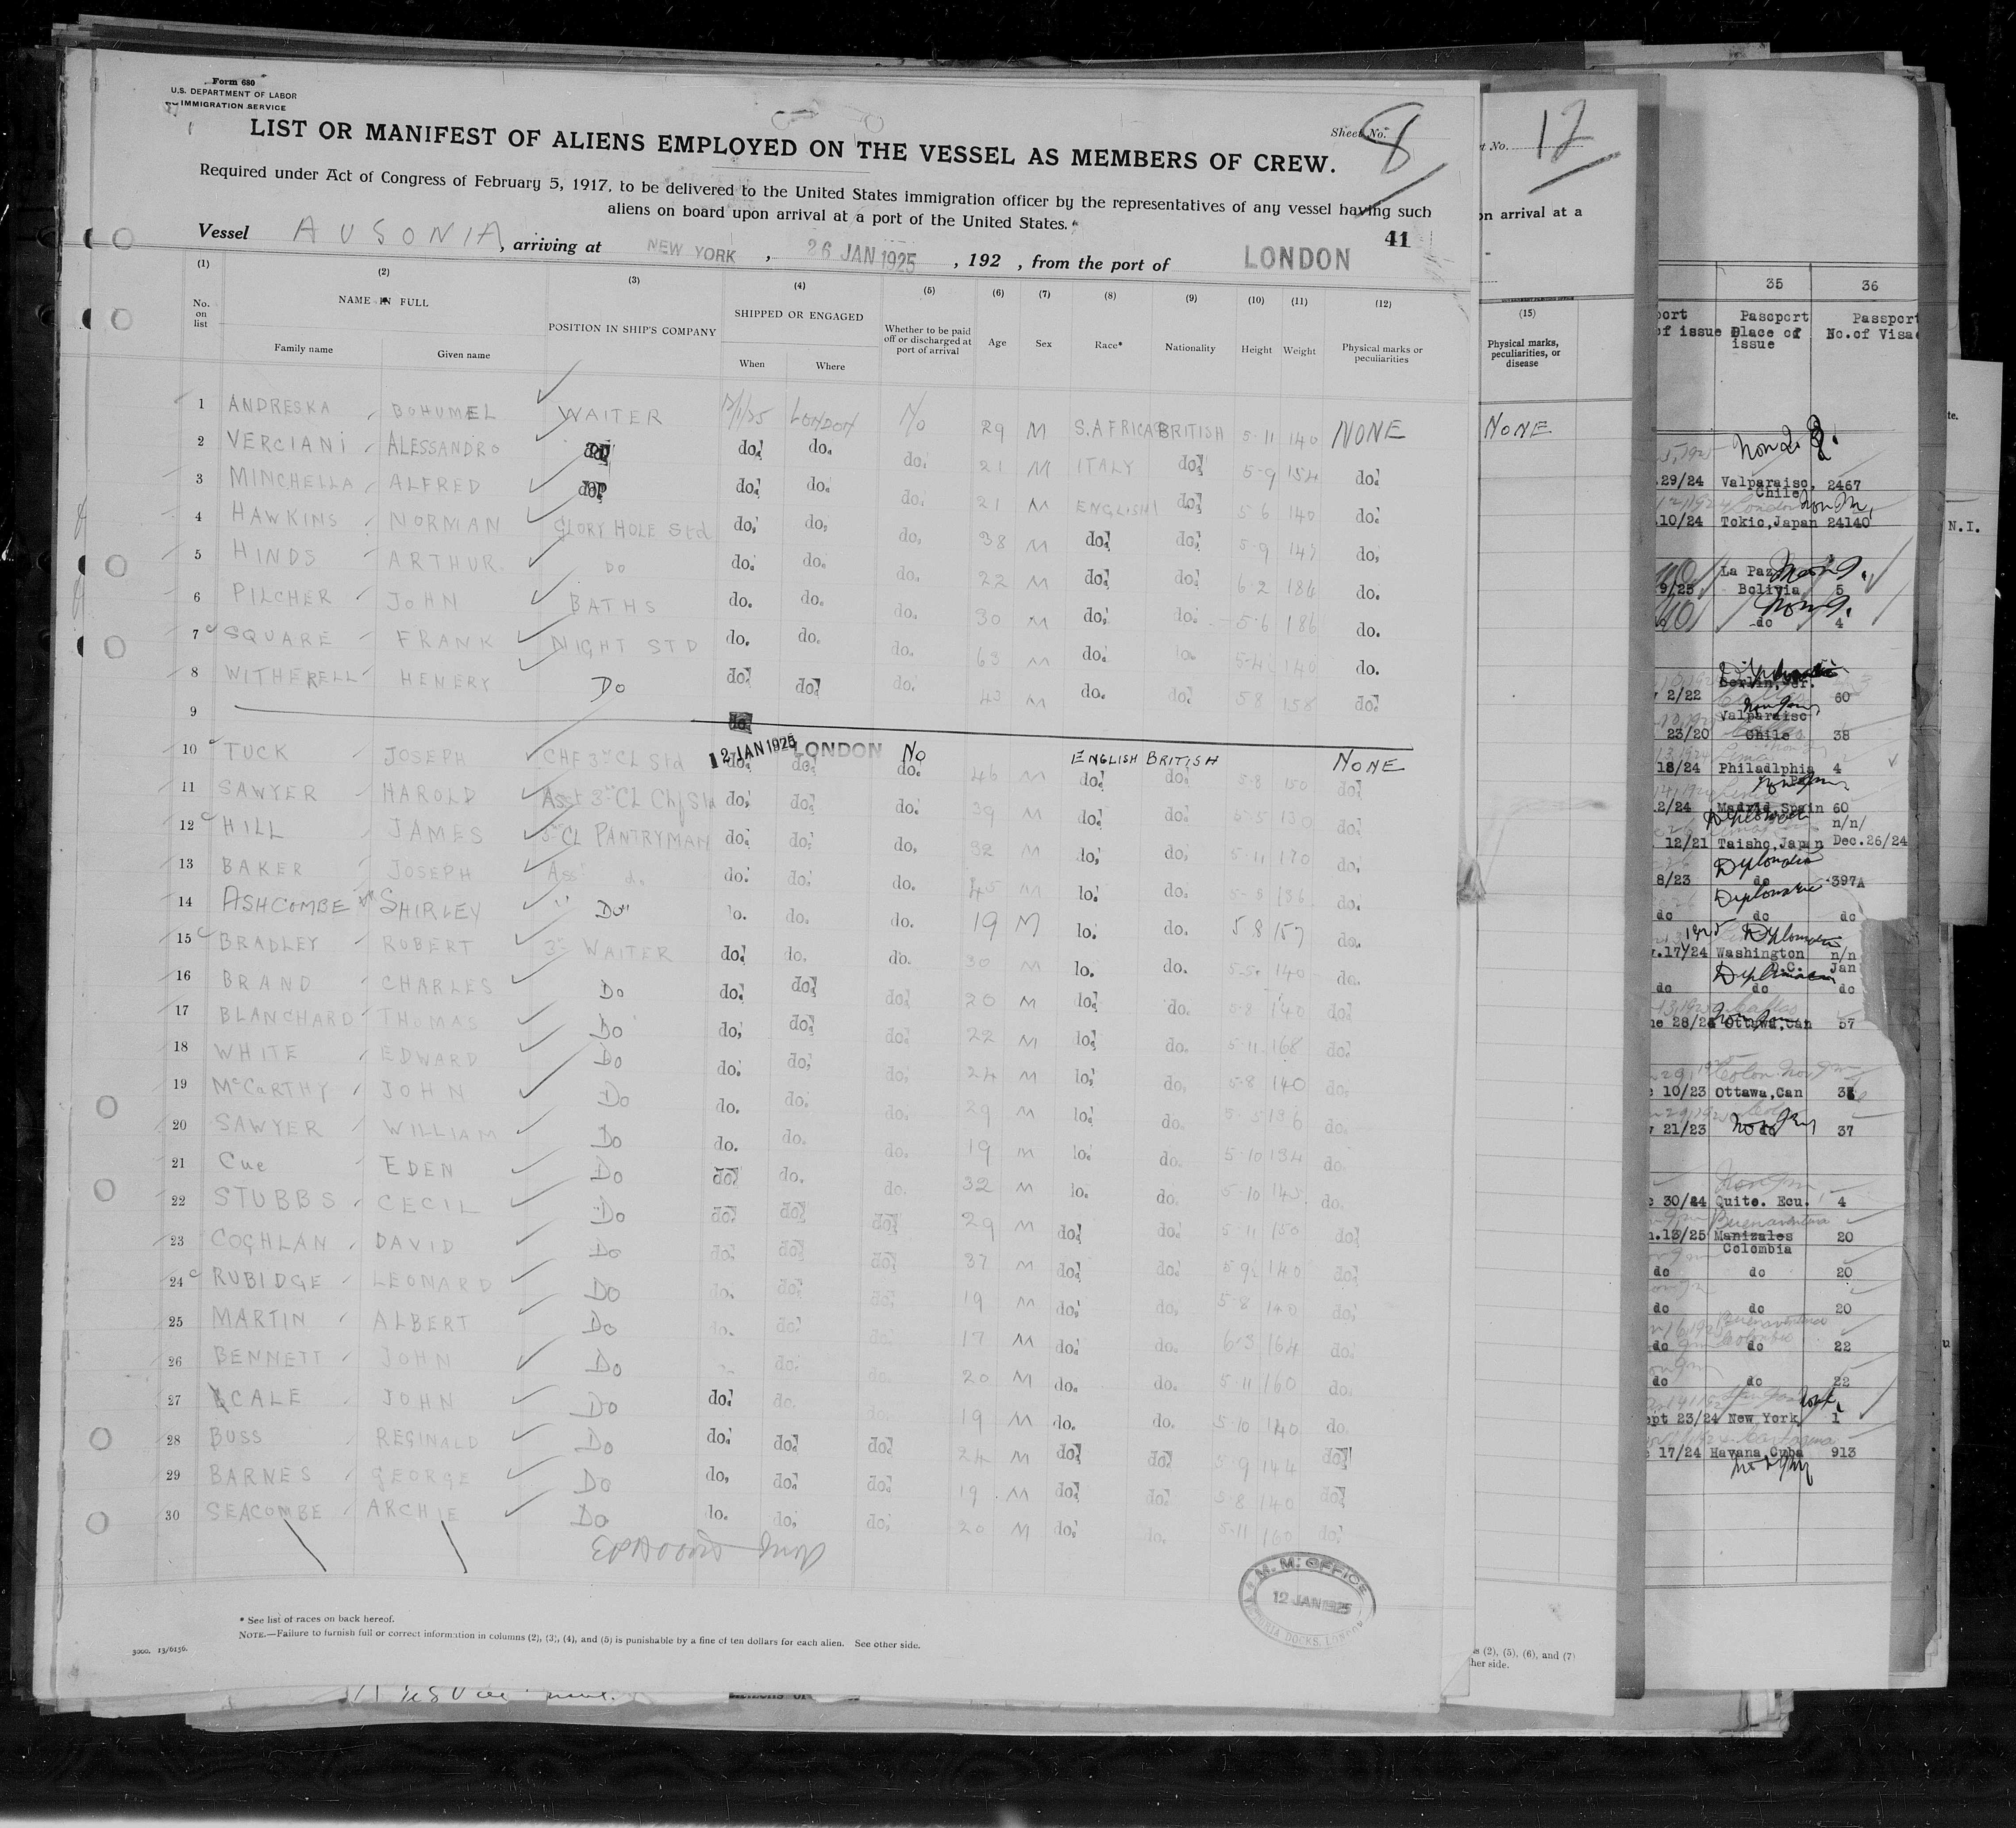 Form 680
U.S. DEPARTMENT OF LABOR
IMMIGRATION SERVICE
Sheet No. 8
LIST OR MANIFEST OF ALIENS EMPLOYED ON THE VESSEL AS MEMBERS OF CREW.
Required under Act of Congress of February 5, 1917, to be delivered to the United States immigration officer by the representatives of any vessel having such
aliens on board upon arrival at a port of the United States.
41
Vessel AUSONIA, arriving at NEW YORK, 26 JAN 1925, 192 , from the port of LONDON
(1) (2) (3) (4) (5) (6) (7) (8) (9) (10) (11) (12)
No. on list NAME IN FULL POSITION IN SHIP'S COMPANY SHIPPED OR ENGAGED Whether to be paid off or discharged at port of arrival Age Sex Race* Nationality Height Weight Physical marks or peculiarities
Family name Given name When Where
1 ANDRESKA BOHUMEL WAITER 12/1/25 LONDON No 29 M S.AFRICA BRITISH 5-11 140 NONE
2 VERCIANI ALESSANDRO do. do. do. do. 21 M ITALY do. 5-9 154 do.
3 MINCHELLA ALFRED do. do. do. do. 21 M ENGLISH do. 5 6 140 do.
4 HAWKINS NORMAN GLORY HOLE Std do. do. do. 38 M do. do. 5-9 147 do.
5 HINDS ARTHUR. DO do. do. do. 22 M do. do. 6-2 186 do.
6 PILCHER JOHN BATHS do. do. do. 30 M do. do. 5-6 186 do.
7 SQUARE FRANK NIGHT STD do. do. do. 63 M do. do. 5-4 140 do.
8 WITHERELL HENERY Do do. do. do. 43 M do. do. 5 8 158 do.
9 do.
12 JAN 1925 LONDON No ENGLISH BRITISH NONE
10 TUCK JOSEPH CHF 3rd CL Std do. do. do. 46 M do. do. 5-8 150 do.
11 SAWYER HAROLD Asst 3rd CL Chf Std do. do. do. 39 M do. do. 5-5 130 do.
12 HILL JAMES 3rd CL PANTRYMAN do. do. do. 32 M do. do. 5-11 170 do.
13 BAKER JOSEPH Asst do. do. do. do. 45 M do. do. 5-8 136 do.
14 ASHCOMBE SHIRLEY " Do " do. do. do. 19 M do. do. 5 8 157 do.
15 BRADLEY ROBERT 3rd WAITER do. do. do. 30 M do. do. 5-5 140 do.
16 BRAND CHARLES Do do. do. do. 20 M do. do. 5-8 140 do.
17 BLANCHARD THOMAS Do do. do. do. 22 M do. do. 5-11 168 do.
18 WHITE EDWARD Do do. do. do. 24 M do. do. 5-8 140 do.
19 McCARTHY JOHN Do do. do. do. 29 M do. do. 5-5 136 do.
20 SAWYER WILLIAM Do do. do. do. 19 M do. do. 5-10 134 do.
21 Cue EDEN Do do. do. do. 32 M do. do. 5-10 145 do.
22 STUBBS CECIL Do do. do. do. 29 M do. do. 5 11 150 do.
23 COGHLAN DAVID Do do. do. do. 37 M do. do. 5-9½ 140 do.
24 RUBIDGE LEONARD Do do. do. do. 19 M do. do. 5-8 140 do.
25 MARTIN ALBERT Do do. do. do. 17 M do. do. 6-3 164 do.
26 BENNETT JOHN Do do. do. 20 M do. do. 5-11 160 do.
27 SCALE JOHN Do do. do. do. 19 M do. do. 5-10 140 do.
28 BUSS REGINALD Do do. do. do. 24 M do. do. 5-9 144 do.
29 BARNES GEORGE Do do. do. do. 19 M do. do. 5-8 140 do.
30 SEACOMBE ARCHIE Do do. do. do. 20 M do. do. 5-11 160 do.
M. M. OFFICE
12 JAN 1925
VICTORIA DOCKS, LONDON
* See list of races on back hereof.
NOTE.—Failure to furnish full or correct information in columns (2), (3), (4), and (5) is punishable by a fine of ten dollars for each alien. See other side.
3000. 13/6156.
t No. 12
on arrival at a
(15)
Physical marks, peculiarities, or disease
NONE
s (2), (5), (6), and (7)
her side.
35 36
port of issue Passport Place of issue Passport No. of Visa
29/24 Valparaiso, Chile 2467
10/24 Tokio, Japan 24140
N.I.
9/25 La Paz Bolivia 5
do 4
2/22 Berlin, Ger. 60
23/20 Valparaiso Chile 38
18/24 Philadlphia Pa 4
2/24 Madrid, Spain 60
12/21 Taisho, Japan n/n/ Dec.26/24
8/23 do 397A
Diplomatic
do do do
.17/24 Washington D.C. n/n Jan
do do do
ne 28/24 Ottawa, Can 57
10/23 Ottawa, Can 37
21/23 do 37
30/24 Quito. Ecu. 4
Buenaventura
.13/25 Manizales Colombia 20
do do 20
do do 20
Buenaventura
do do 22
do do 22
ept 23/24 New York 1
17/24 Havana, Cuba 913